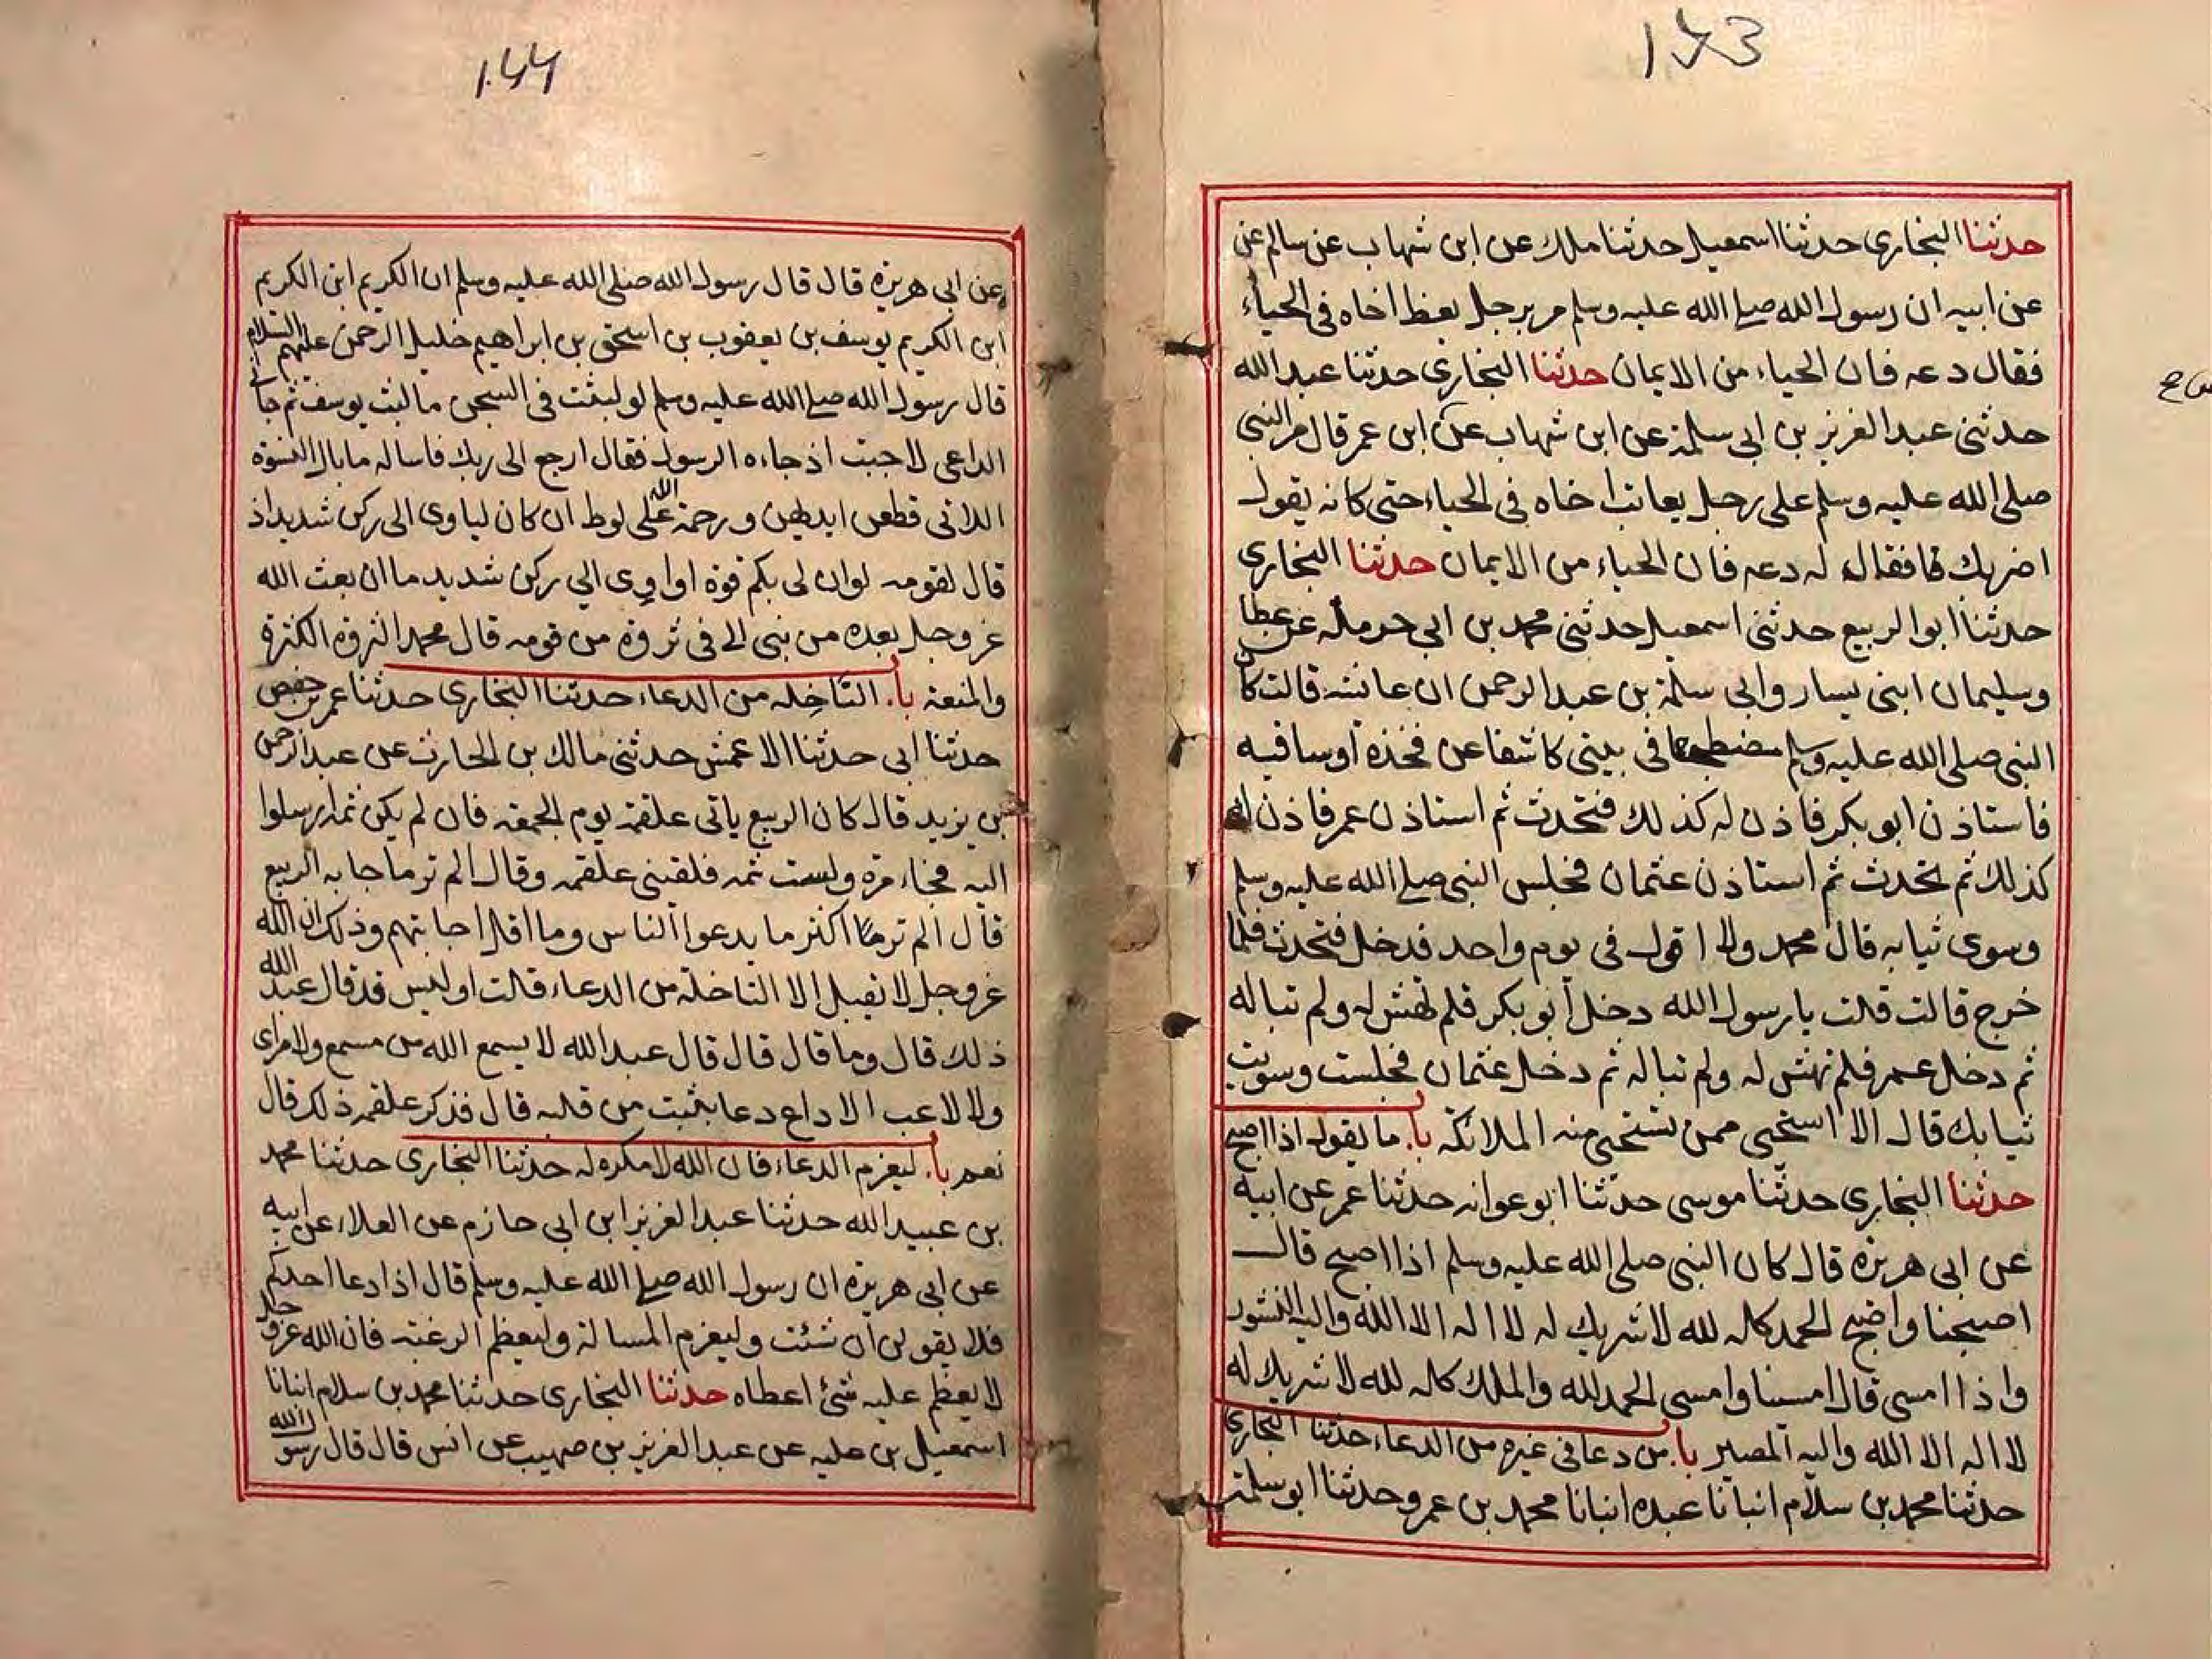 173
حدثنا البخاري حدثنا اسمعيل حدثنا ملك عن ابن شهاب عن سالم عن
عن ابيه ان رسول الله صلى الله عليه وسلم مر برجل يعظ اخاه في الحياء
فقال دعه فان الحياء من الايمان حدثنا البخاري حدثنا عبد الله
حدثني عبد العزيز بن ابي سلمة عن ابن شهاب عن ابن عمر قال مر النبي
صلى الله عليه وسلم على رجل يعاتب اخاه في الحياء حتى كانه يقول
اضربك فقال له دعه فان الحياء من الايمان حدثنا البخاري
حدثنا ابو الربيع حدثني اسمعيل حدثني محمد بن ابي حرملة عن عطا
وسليمان ابني يسار وابي سلمة بن عبد الرحمن ان عائشه قالت كان
النبي صلى الله عليه وسلم مضطجعا في بيتي كاشفا عن فخذه او ساقيه
فاستاذن ابو بكر فاذن له كذلك فتحدث ثم استاذن عمر فاذن له
كذلك ثم تحدث ثم استاذن عثمان فجلس النبي صلى الله عليه وسلم
وسوى ثيابه قال محمد ولا اقول في يوم واحد فدخل فتحدث فلما
خرج قالت قلت يا رسول الله دخل ابو بكر فلم تهش له ولم تباله
ثم دخل عمر فلم تهش له ولم تباله ثم دخل عثمان فجلست وسويت
ثيابك قال الا استحيي ممن تستحيي منه الملائكة با. ما يقول اذا اصبح
حدثنا البخاري حدثنا موسى حدثنا ابو عوانه حدثنا عمر عن ابيه
عن ابي هريرة قال كان النبي صلى الله عليه وسلم اذا اصبح قال
اصبحنا واصبح الحمد كله لله لا شريك له لا اله الا الله واليه النشور
واذا امسى قال امسينا وامسى الحمد لله والملك كله لله لا شريك له
لا اله الا الله واليه المصير با. من دعا في غيره من الدعاء حدثنا البخاري
حدثنا محمد بن سلام انبانا عبده انبانا محمد بن عمرو حدثنا ابو سلمة
144
عن ابي هريرة قال قال رسول الله صلى الله عليه وسلم ان الكريم ابن الكريم
ابن الكريم يوسف بن يعقوب بن اسحق بن ابراهيم خليل الرحمن عليهم السلام
قال رسول الله صلى الله عليه وسلم لو لبثت في السجن ما لبث يوسف ثم جاني
الداعي لاجبت اذ جاءه الرسول فقال ارجع الى ربك فاساله ما بال النسوة
اللاتي قطعن ايديهن ورحمة الله على لوط ان كان لياوى الى ركن شديد اذ
قال لقومه لو ان لي بكم قوة او اوي الي ركن شديد ما ان بعث الله
عز وجل بعده من نبي الا في ثروة من قومه قال محمد الثروة الكثرة
والمنعة با. الناخله من الدعاء حدثنا البخاري حدثنا عمر بن حفص
حدثنا ابي حدثنا الاعمش حدثني مالك بن الحارث عن عبد الرحمن
بن يزيد قال كان الربيع ياتي علقمة يوم الجمعه فان لم يكن ثمه ارسلوا
اليه فجاء مرة ولست ثمه فلقيني علقمه وقال الم تر ما جا به الربيع
قال الم تر ما اكثر ما يدعوا الناس وما اقل اجابتهم وذلك ان الله
عز وجل لا يقبل الا الناخلة من الدعاء قالت او ليس قد قال عبد الله
ذلك قال وما قال قال قال عبد الله لا يسمع الله من مسمع ولا مراى
ولا لاعب الا داع دعا بثبت من قلبه قال فذكر علقمه ذلك قال
نعم با. ليعزم الدعاء فان الله لا مكره له حدثنا البخاري حدثنا محمد
بن عبيد الله حدثنا عبد العزيز ابن ابي حازم عن العلاء عن ابيه
عن ابي هريرة ان رسول الله صلى الله عليه وسلم قال اذا دعا احدكم
فلا يقولن ان شئت وليعزم المسالة وليعظم الرغبة فان الله عز وجل
لا يعظم عليه شئ اعطاه حدثنا البخاري حدثنا محمد بن سلام انبانا
اسمعيل بن عليه عن عبد العزيز بن صهيب عن انس قال قال رسول الله